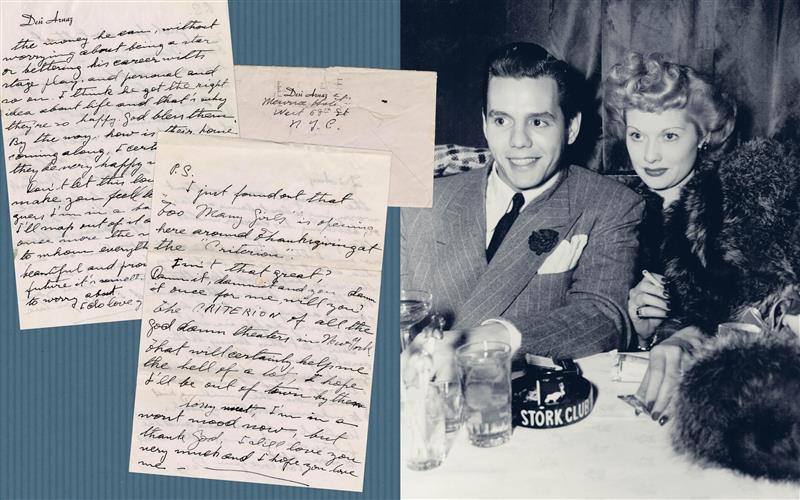 Desi Arnaz
the money he can, without
worrying about being a star
or bettering his career with
stage play, and personal and
so on. I think he got the right
idea about life and that's why
they're so happy. God bless them.
By the way, how is their home
coming along, I cert
they be very happy i
Don't let this
make you feel b
I'm in a ba
I'll snap out of it a
once more the
to whom everyth
beautiful and pro
future it's
to worry about
I do love y
Desi Arnaz
Hotel
West 58th St
N.Y.C.
P.S.
I just found out that
"Too Many Girls" is opening
here around Thanksgiving at
the "Criterion".
Isn't that great,
Damn it, damn it and you damn
it once for me will you?
The CRITERION of all the
god damn theaters in New York,
that will certainly help me
the hell of a lot, I hope
I'll be out of town by then
Sorry sweet, I'm in a
wont mood now, but
thank God, I still love you
very much and I hope you love
me —
STORK CLUB